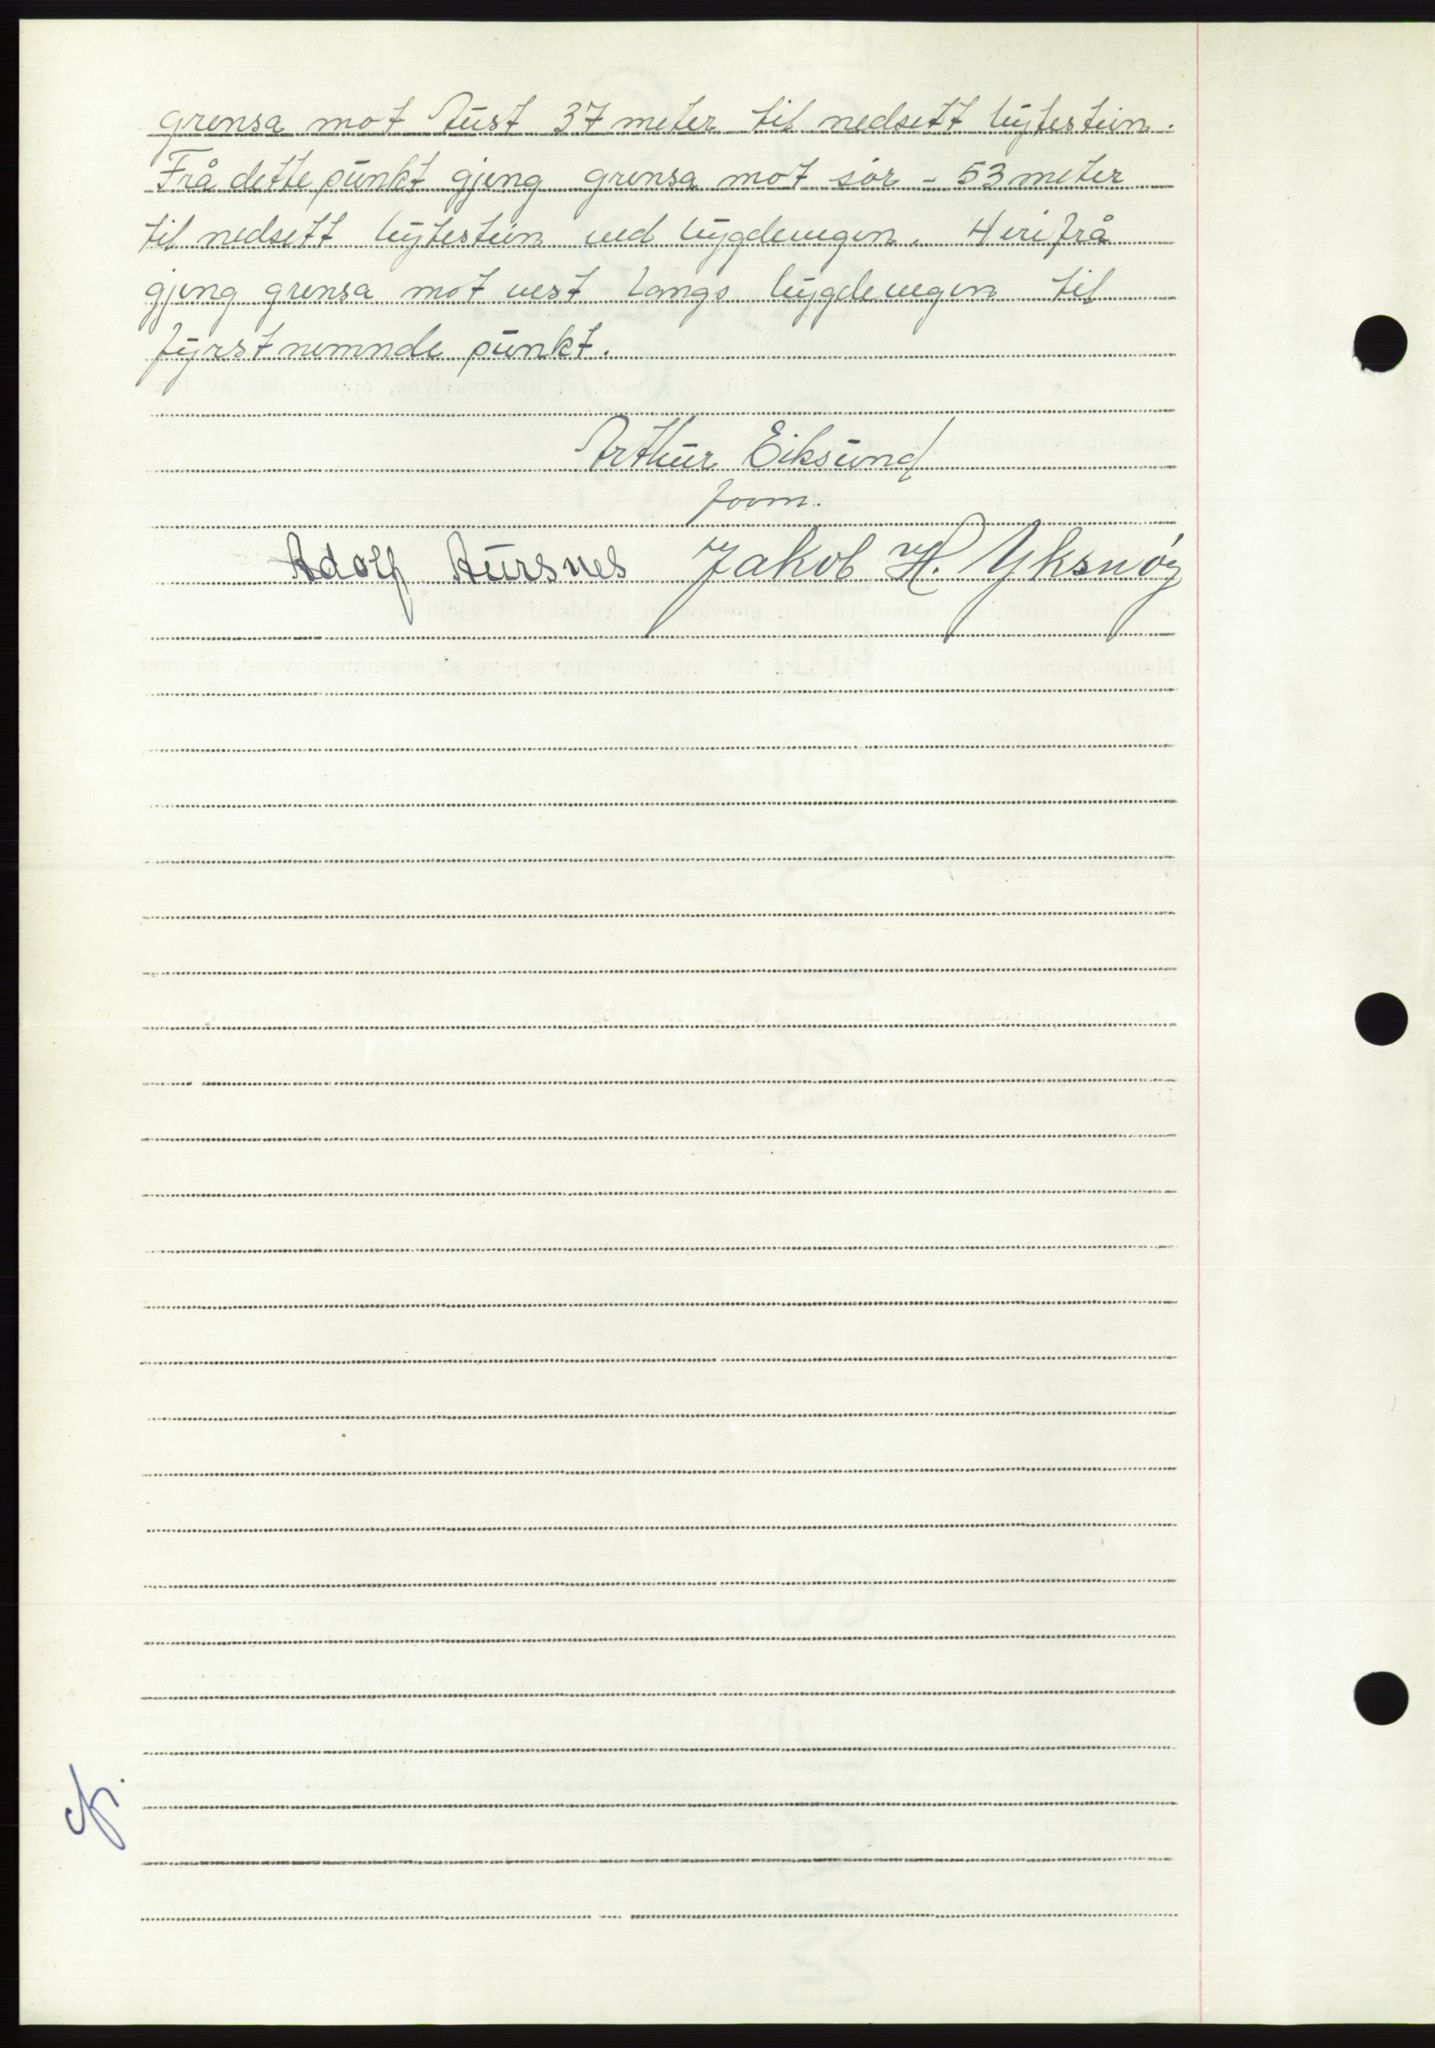 grensa mot Aust 37 meter til nedsett bytestein.
Frå dette punkt gjeng grensa mot sør - 53 meter
til nedsett bytestein ved bygdevegen. Herifrå
gjeng grensa mot vest langs bygdevegen til
fyrstnemnde punkt.
Arthur Eiksund
form.
Adolf Aursnes Jakob H. Yksnøy